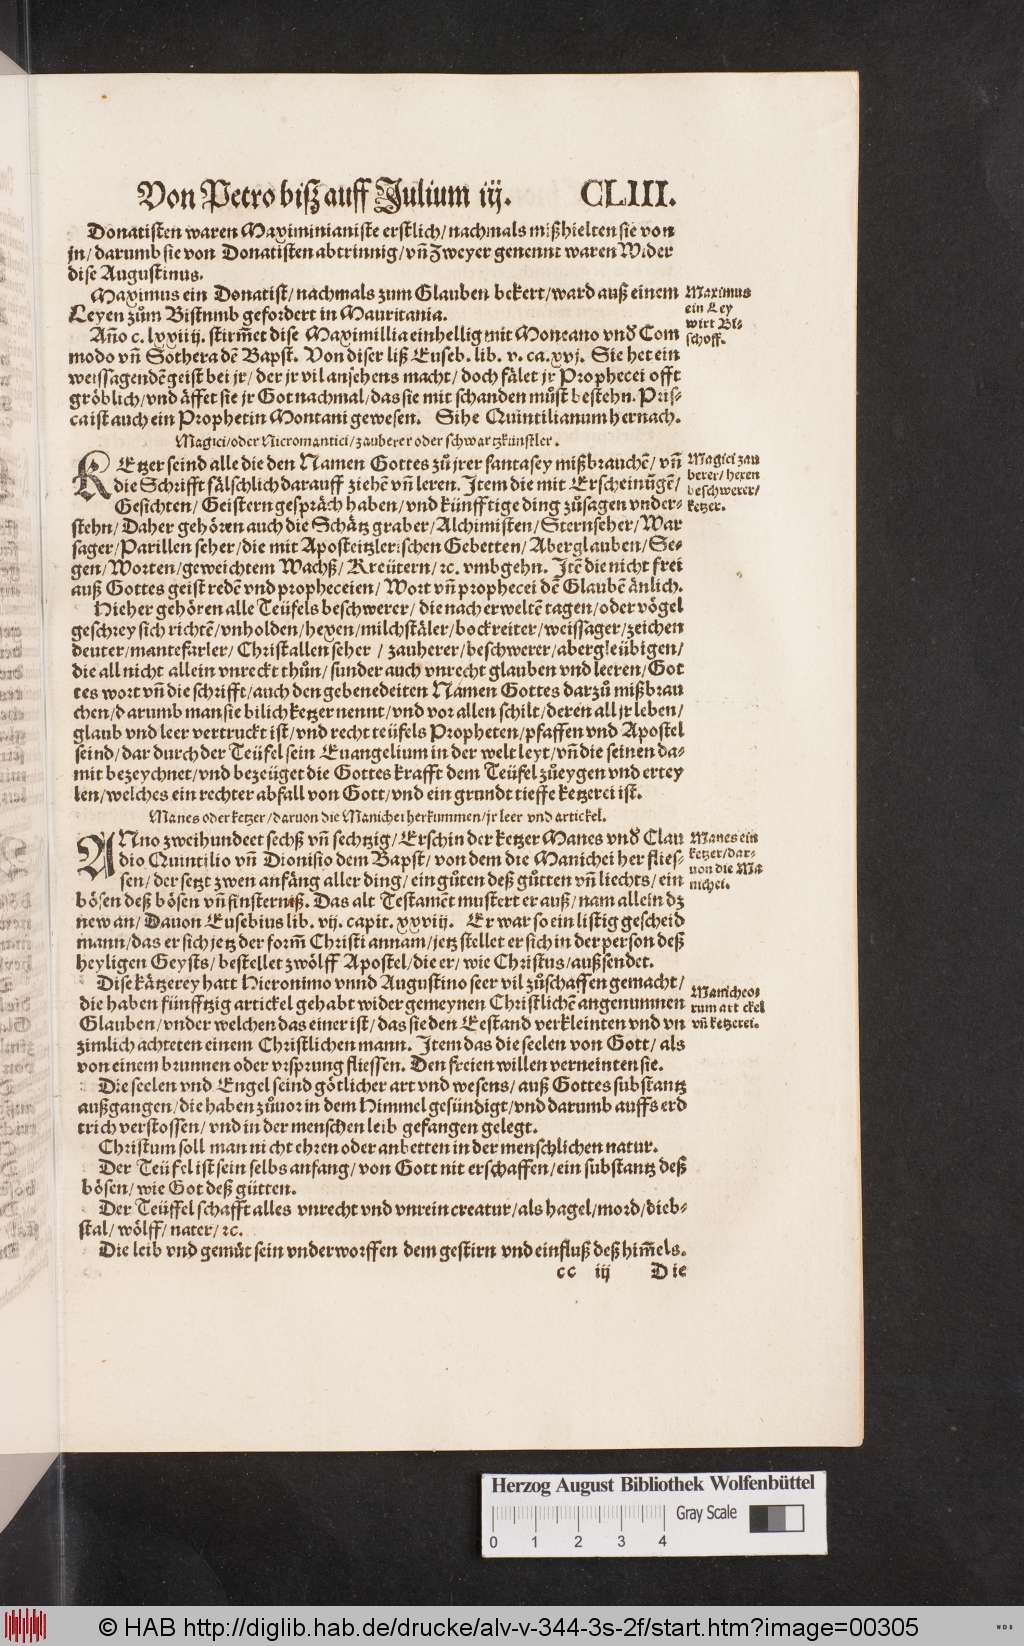 Von Petro biß auff Julium iij. CLIII.
Donatisten waren Maximinianiste erstlich/ nachmals mißhielten sie von
jn/ darumb sie von Donatisten abtrinnig/ vñ Zweyer genennt waren Wider
dise Augustinus.
Maximus ein Donatist/ nachmals zum Glauben bekert/ ward auß einem
Leyen zům Bistumb gefordert in Mauritania.
Maximus
ein Ley
wirt Bi-
schoff.
Año c. lxxiiij. stirm̃et dise Maximillia einhellig mit Montano vnd Com
modo vñ Sothera dẽ Bapst. Von diser liß Euseb. lib. v. ca. xvj. Sie het ein
weissagendẽ geist bei jr/ der jr vil ansehens macht/ doch fälet jr Prophecei offt
gröblich/ vnd äffet sie jr Got nachmal/ das sie mit schanden můst bestehn. Pris-
ca ist auch ein Prophetin Montani gewesen. Sihe Quintilianum hernach.
Magici/ oder Nicromantici/ zauberer oder schwartzkünstler.
KEtzer seind alle die den Namen Gottes zů jrer fantasey mißbrauchẽ/ vñ
die Schrifft fälschlich darauff ziehẽ vñ leren. Item die mit Erscheinũgẽ/
Gesichten/ Geistern gespräch haben/ vnd künfftige ding zůsagen vnder-
stehn/ Daher gehören auch die Schätz graber/ Alchimisten/ Sternseher/ War
sager/ Parillen seher/ die mit Aposteitzlerischen Gebetten/ Aberglauben/ Se-
gen/ Worten/ geweichtem Wachß/ Kreütern/ ꝛc. vmbgehn. Itẽ die nicht frei
auß Gottes geist redẽ vnd propheceien/ Wort vñ prophecei dẽ Glaubẽ änlich.
Magici zau
berer/ hexen
beschwerer/
ketzer.
Hieher gehören alle Teüfels beschwerer/ die nach erweltẽ tagen/ oder vögel
geschrey sich richtẽ/ vnholden/ hexen/ milchstäler/ bockreiter/ weissager/ zeichen
deuter/ mantefarler/ Christallen seher / zauherer/ beschwerer/ abergleübigen/
die all nicht allein vnreckt thůn/ sunder auch vnrecht glauben vnd leeren/ Got
tes wort vñ die schrifft/ auch den gebenedeiten Namen Gottes darzů mißbrau
chen/ darumb man sie bilich ketzer nennt/ vnd vor allen schilt/ deren all jr leben/
glaub vnd leer vertruckt ist/ vnd recht teüfels Propheten/ pfaffen vnd Apostel
seind/ dar durch der Teüfel sein Euangelium in der welt leyt/ vñ die seinen da-
mit bezeychnet/ vnd bezeüget die Gottes krafft dem Teüfel zůeygen vnd ertey
len/ welches ein rechter abfall von Gott/ vnd ein grundt tieffe ketzerei ist.
Manes oder ketzer/ daruon die Manichei herkummen/ jr leer vnd artickel.
ANno zweihundeet sechß vñ sechtzig/ Erschin der ketzer Manes vnd Clau
dio Quintilio vñ Dionisio dem Bapst/ von dem die Manichei her flies-
sen/ der setzt zwen anfäng aller ding/ ein gůten deß gůtten vñ liechts/ ein
bösen deß bösen vñ finsterniß. Das alt Testamẽt mustert er auß/ nam allein dz
new an/ Dauon Eusebius lib. vij. capit. xxviij. Er war so ein listig gescheid
mann/ das er sich jetz der form̃ Christi annam/ jetz stellet er sich in der person deß
heyligen Geysts/ bestellet zwölff Apostel/ die er/ wie Christus/ außsendet.
Manes ein
ketzer/ dar-
uon die Ma
nichei.
Dise kätzerey hatt Hieronimo vnnd Augustino seer vil zůschaffen gemacht/
die haben fünfftzig artickel gehabt wider gemeynen Christlichẽ angenummen
Glauben/ vnder welchen das einer ist/ das sie den Eestand verkleinten vnd vn
zimlich achteten einem Christlichen mann. Item das die seelen von Gott/ als
von einem brunnen oder vrsprung fliessen. Den freien willen verneinten sie.
Manicheo-
rum artickel
vñ ketzerei.
Die seelen vnd Engel seind götlicher art vnd wesens/ auß Gottes substantz
außgangen/ die haben zůuor in dem Himmel gesündigt/ vnd darumb auffs erd
trich verstossen/ vnd in der menschen leib gefangen gelegt.
Christum soll man nicht ehren oder anbetten in der menschlichen natur.
Der Teüfel ist sein selbs anfang/ von Gott nit erschaffen/ ein substantz deß
bösen/ wie Got deß gůtten.
Der Teüffel schafft alles vnrecht vnd vnrein creatur/ als hagel/ mord/ dieb-
stal/ wölff/ nater/ ꝛc.
Die leib vnd gemüt sein vnderworffen dem gestirn vnd einfluß deß him̃els.
cc iij Die
Herzog August Bibliothek Wolfenbüttel
Gray Scale
0 1 2 3 4
© HAB http://diglib.hab.de/drucke/alv-v-344-3s-2f/start.htm?image=00305